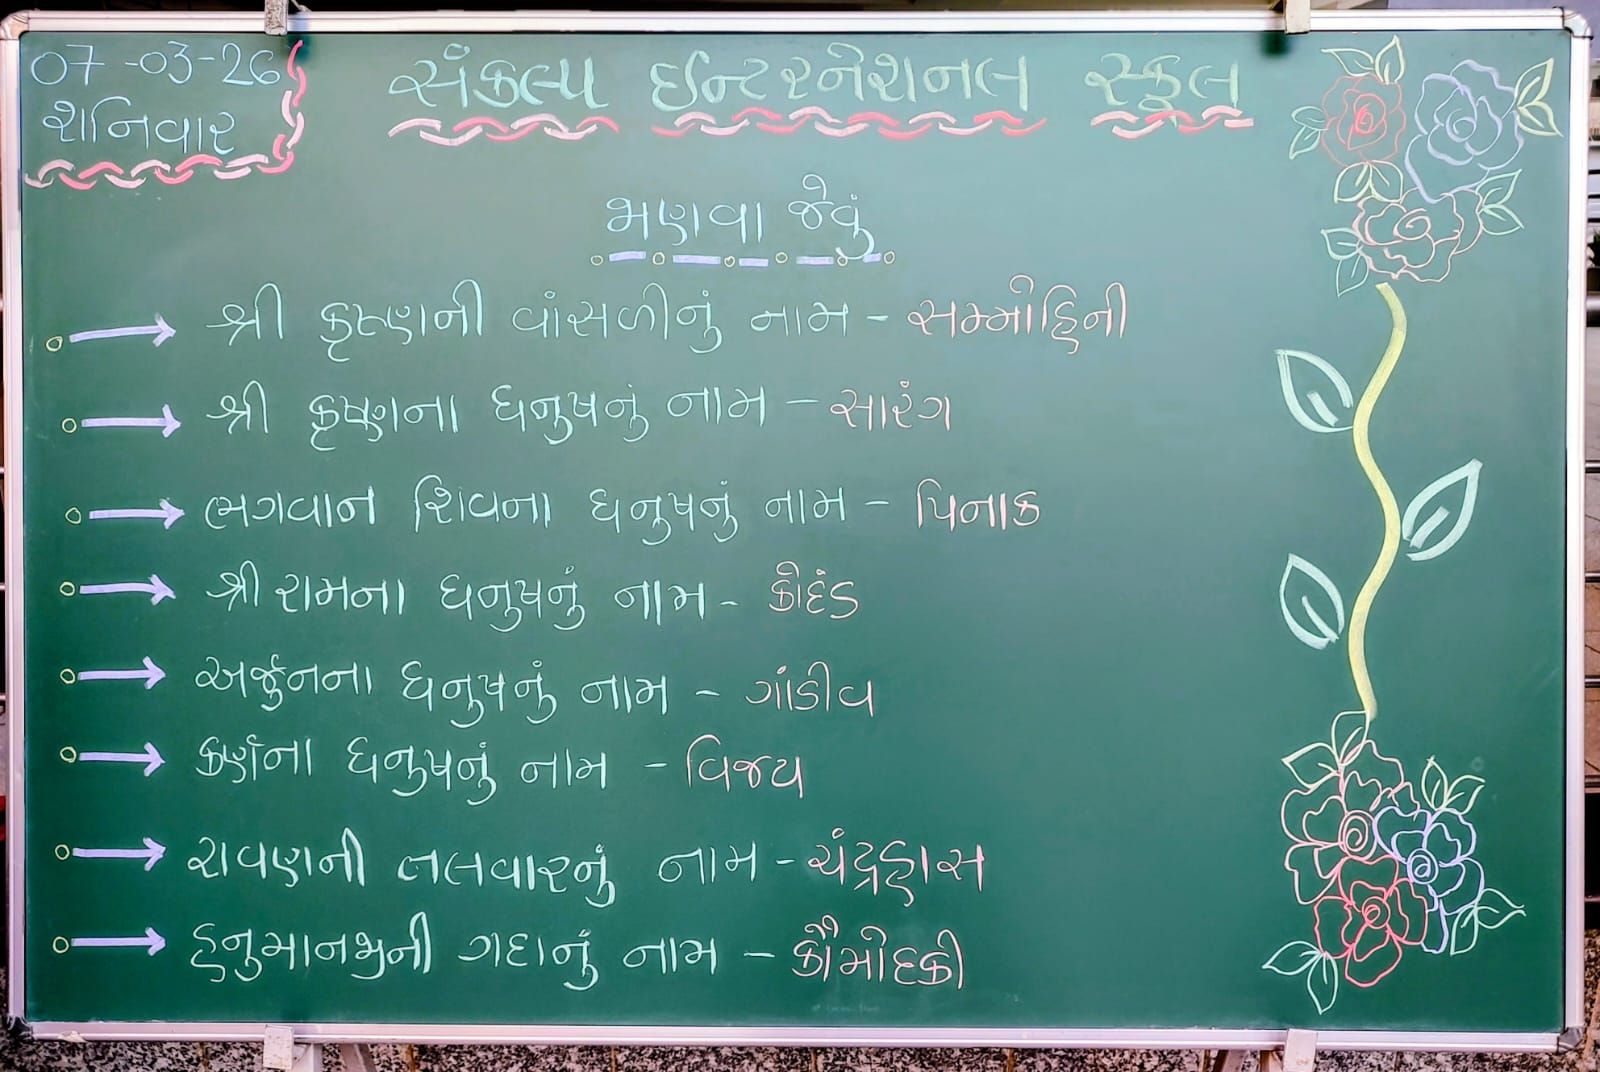 07-03-26
શનિવાર
સંકલ્પ ઈન્ટરનેશનલ સ્કુલ
ભણવા જેવું
શ્રી કૃષ્ણની વાંસળીનું નામ - સમ્મોહિની
શ્રી કૃષ્ણના ધનુષનું નામ - સારંગ
ભગવાન શિવના ધનુષનું નામ - પિનાક
શ્રી રામના ધનુષનું નામ - કોદંડ
અર્જુનના ધનુષનું નામ - ગાંડીવ
કર્ણના ધનુષનું નામ - વિજય
રાવણની તલવારનું નામ - ચંદ્રહાસ
હનુમાનજીની ગદાનું નામ - કૌમોદકી